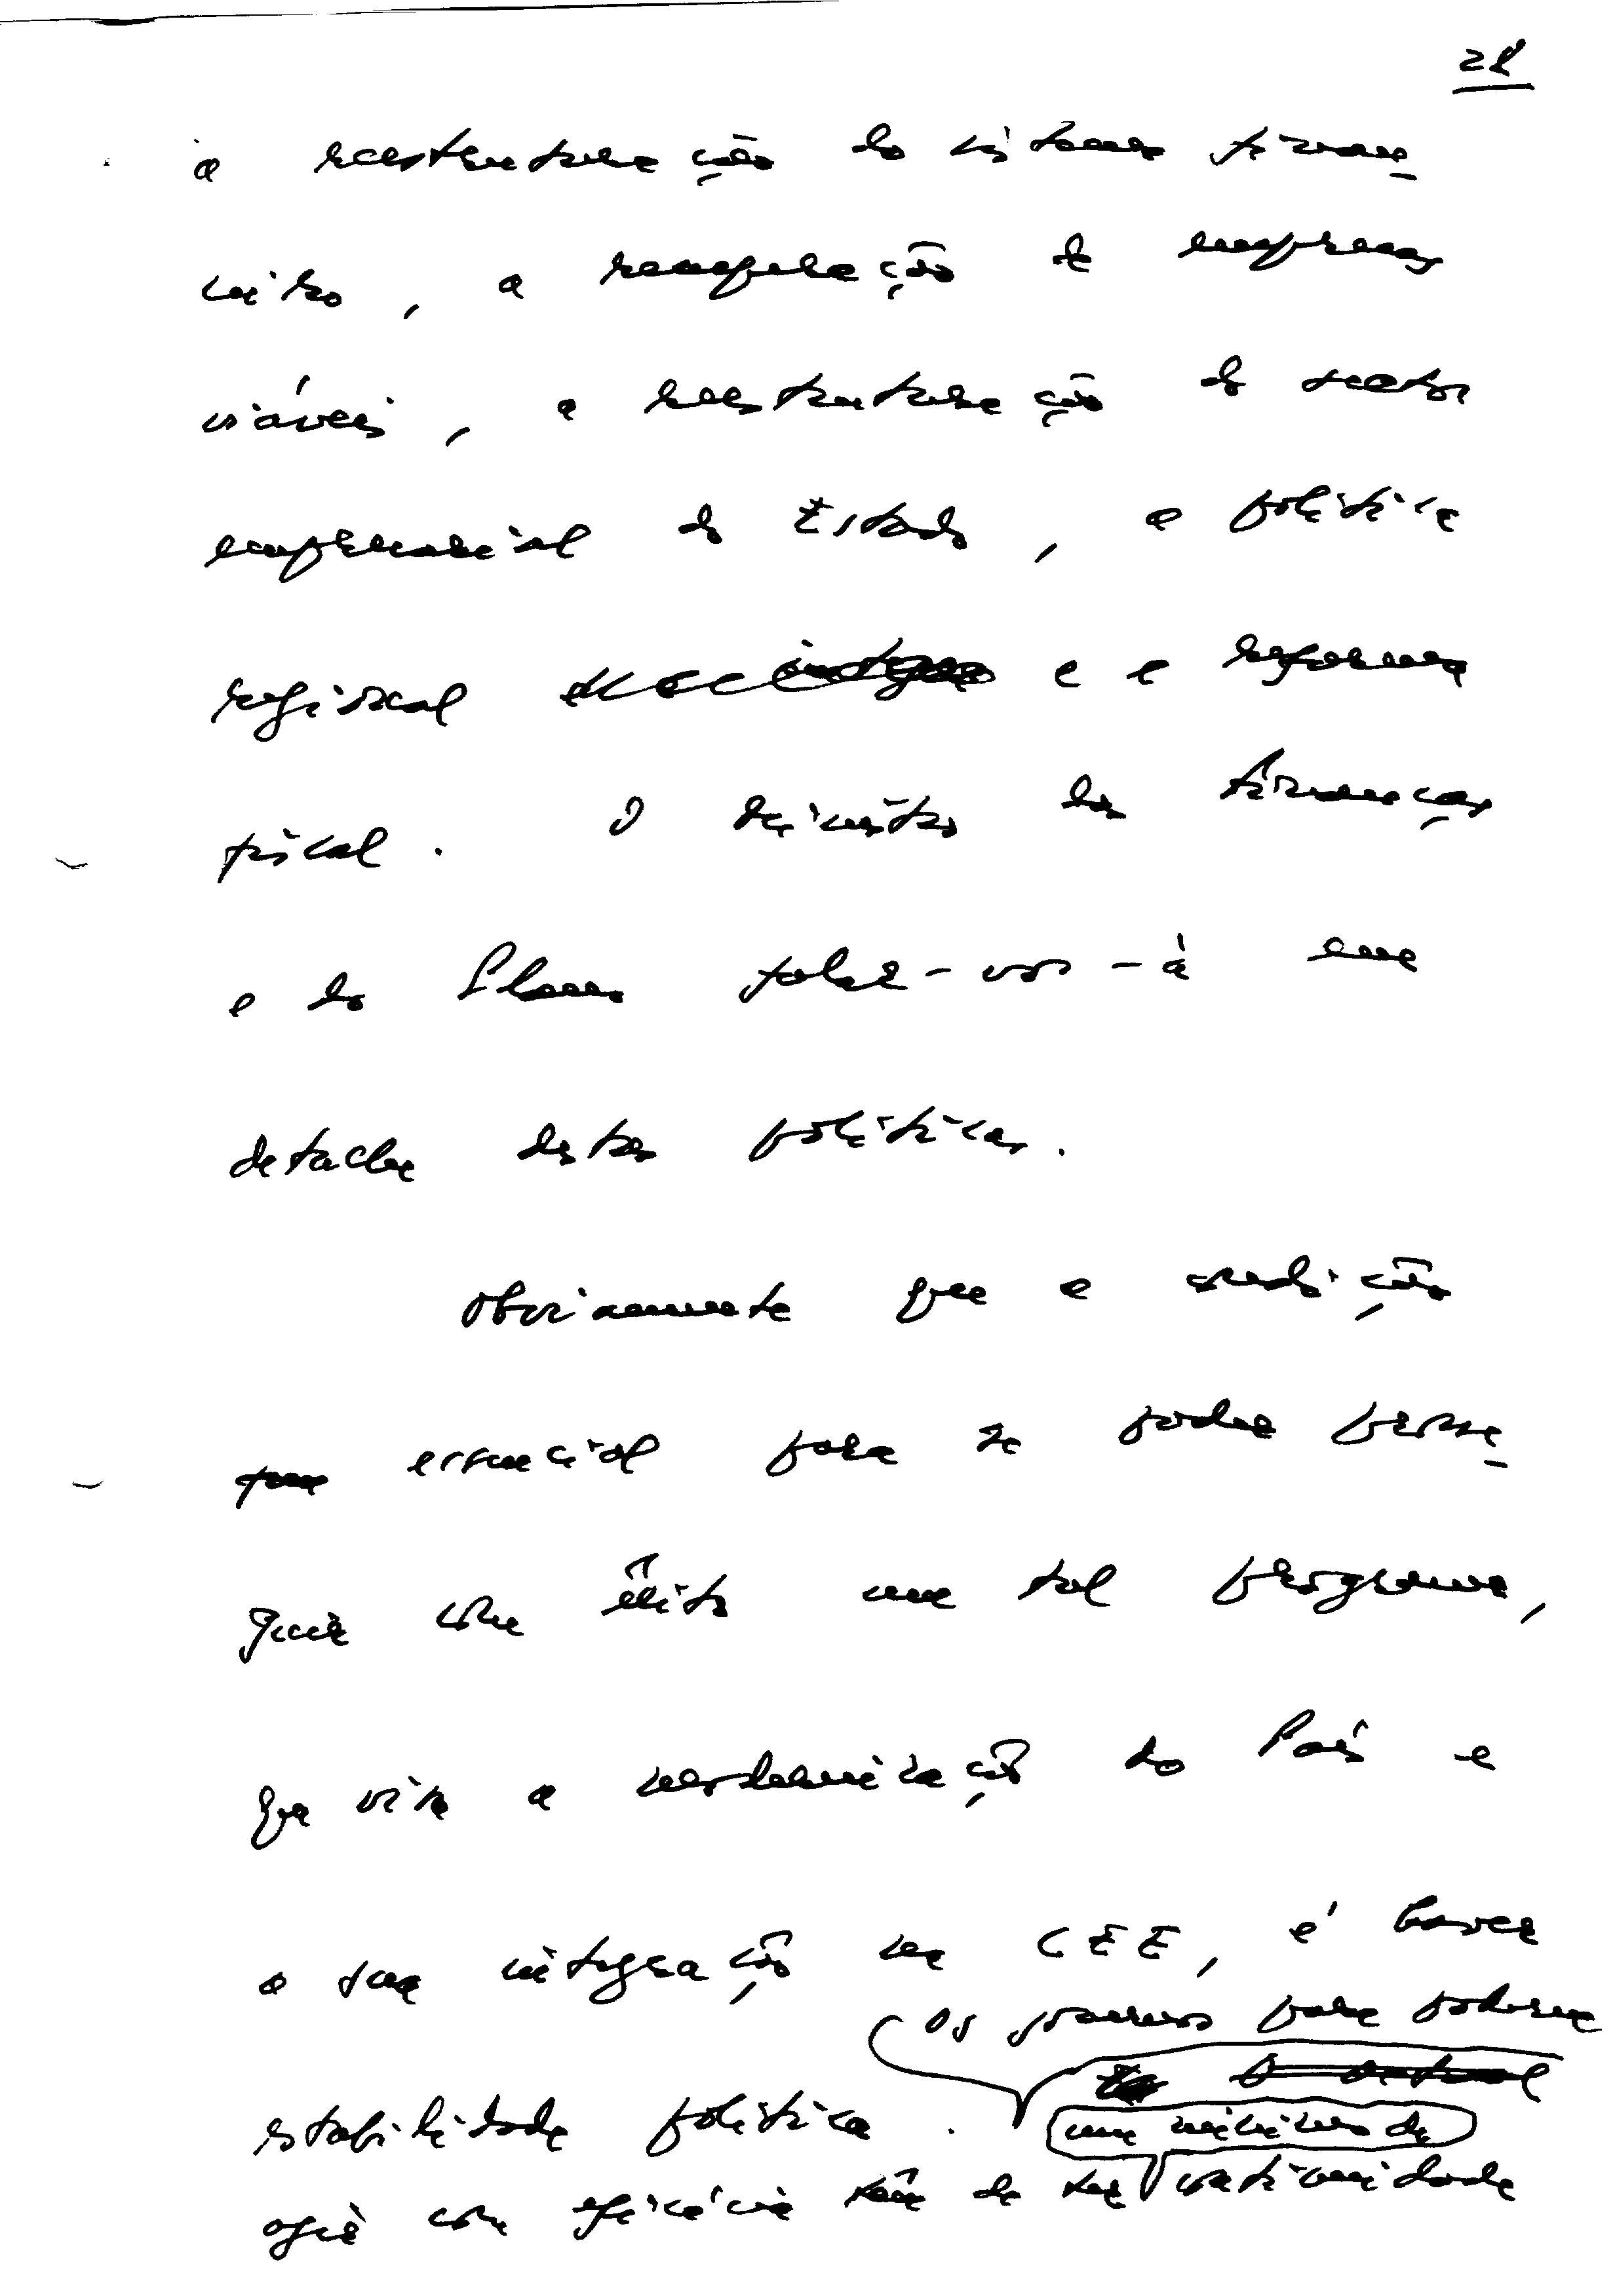 28
a reestruturação do sistema finan-
ceiro, a recuperação de empresas
viáveis, a reestruturação do sector
empresarial do Estado, a política
regional e a reforma
fiscal. O Ministro das Finanças
e do Plano falar-vos-á em
detalhe destas políticas.
Obviamente que a condição
essencial para se poder prosse-
guir com êxito um tal programa,
que visa a modernização do País e
a sua integração na CEE, é haver
estabilidade política. Os governos para poderem
agir com eficácia têm de ter um mínimo de continuidade